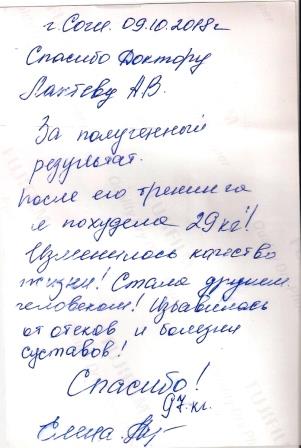 г. Сочи. 09.10.2018г
Спасибо Доктору
Лактеву А.В.
За полученный
результат.
после его тренинга
я похудела 29кг!
Изменилось качество
жизни! Стала другим
человеком! Избавилась
от отеков и болезни
суставов!
Спасибо!
97 кл.
Елена